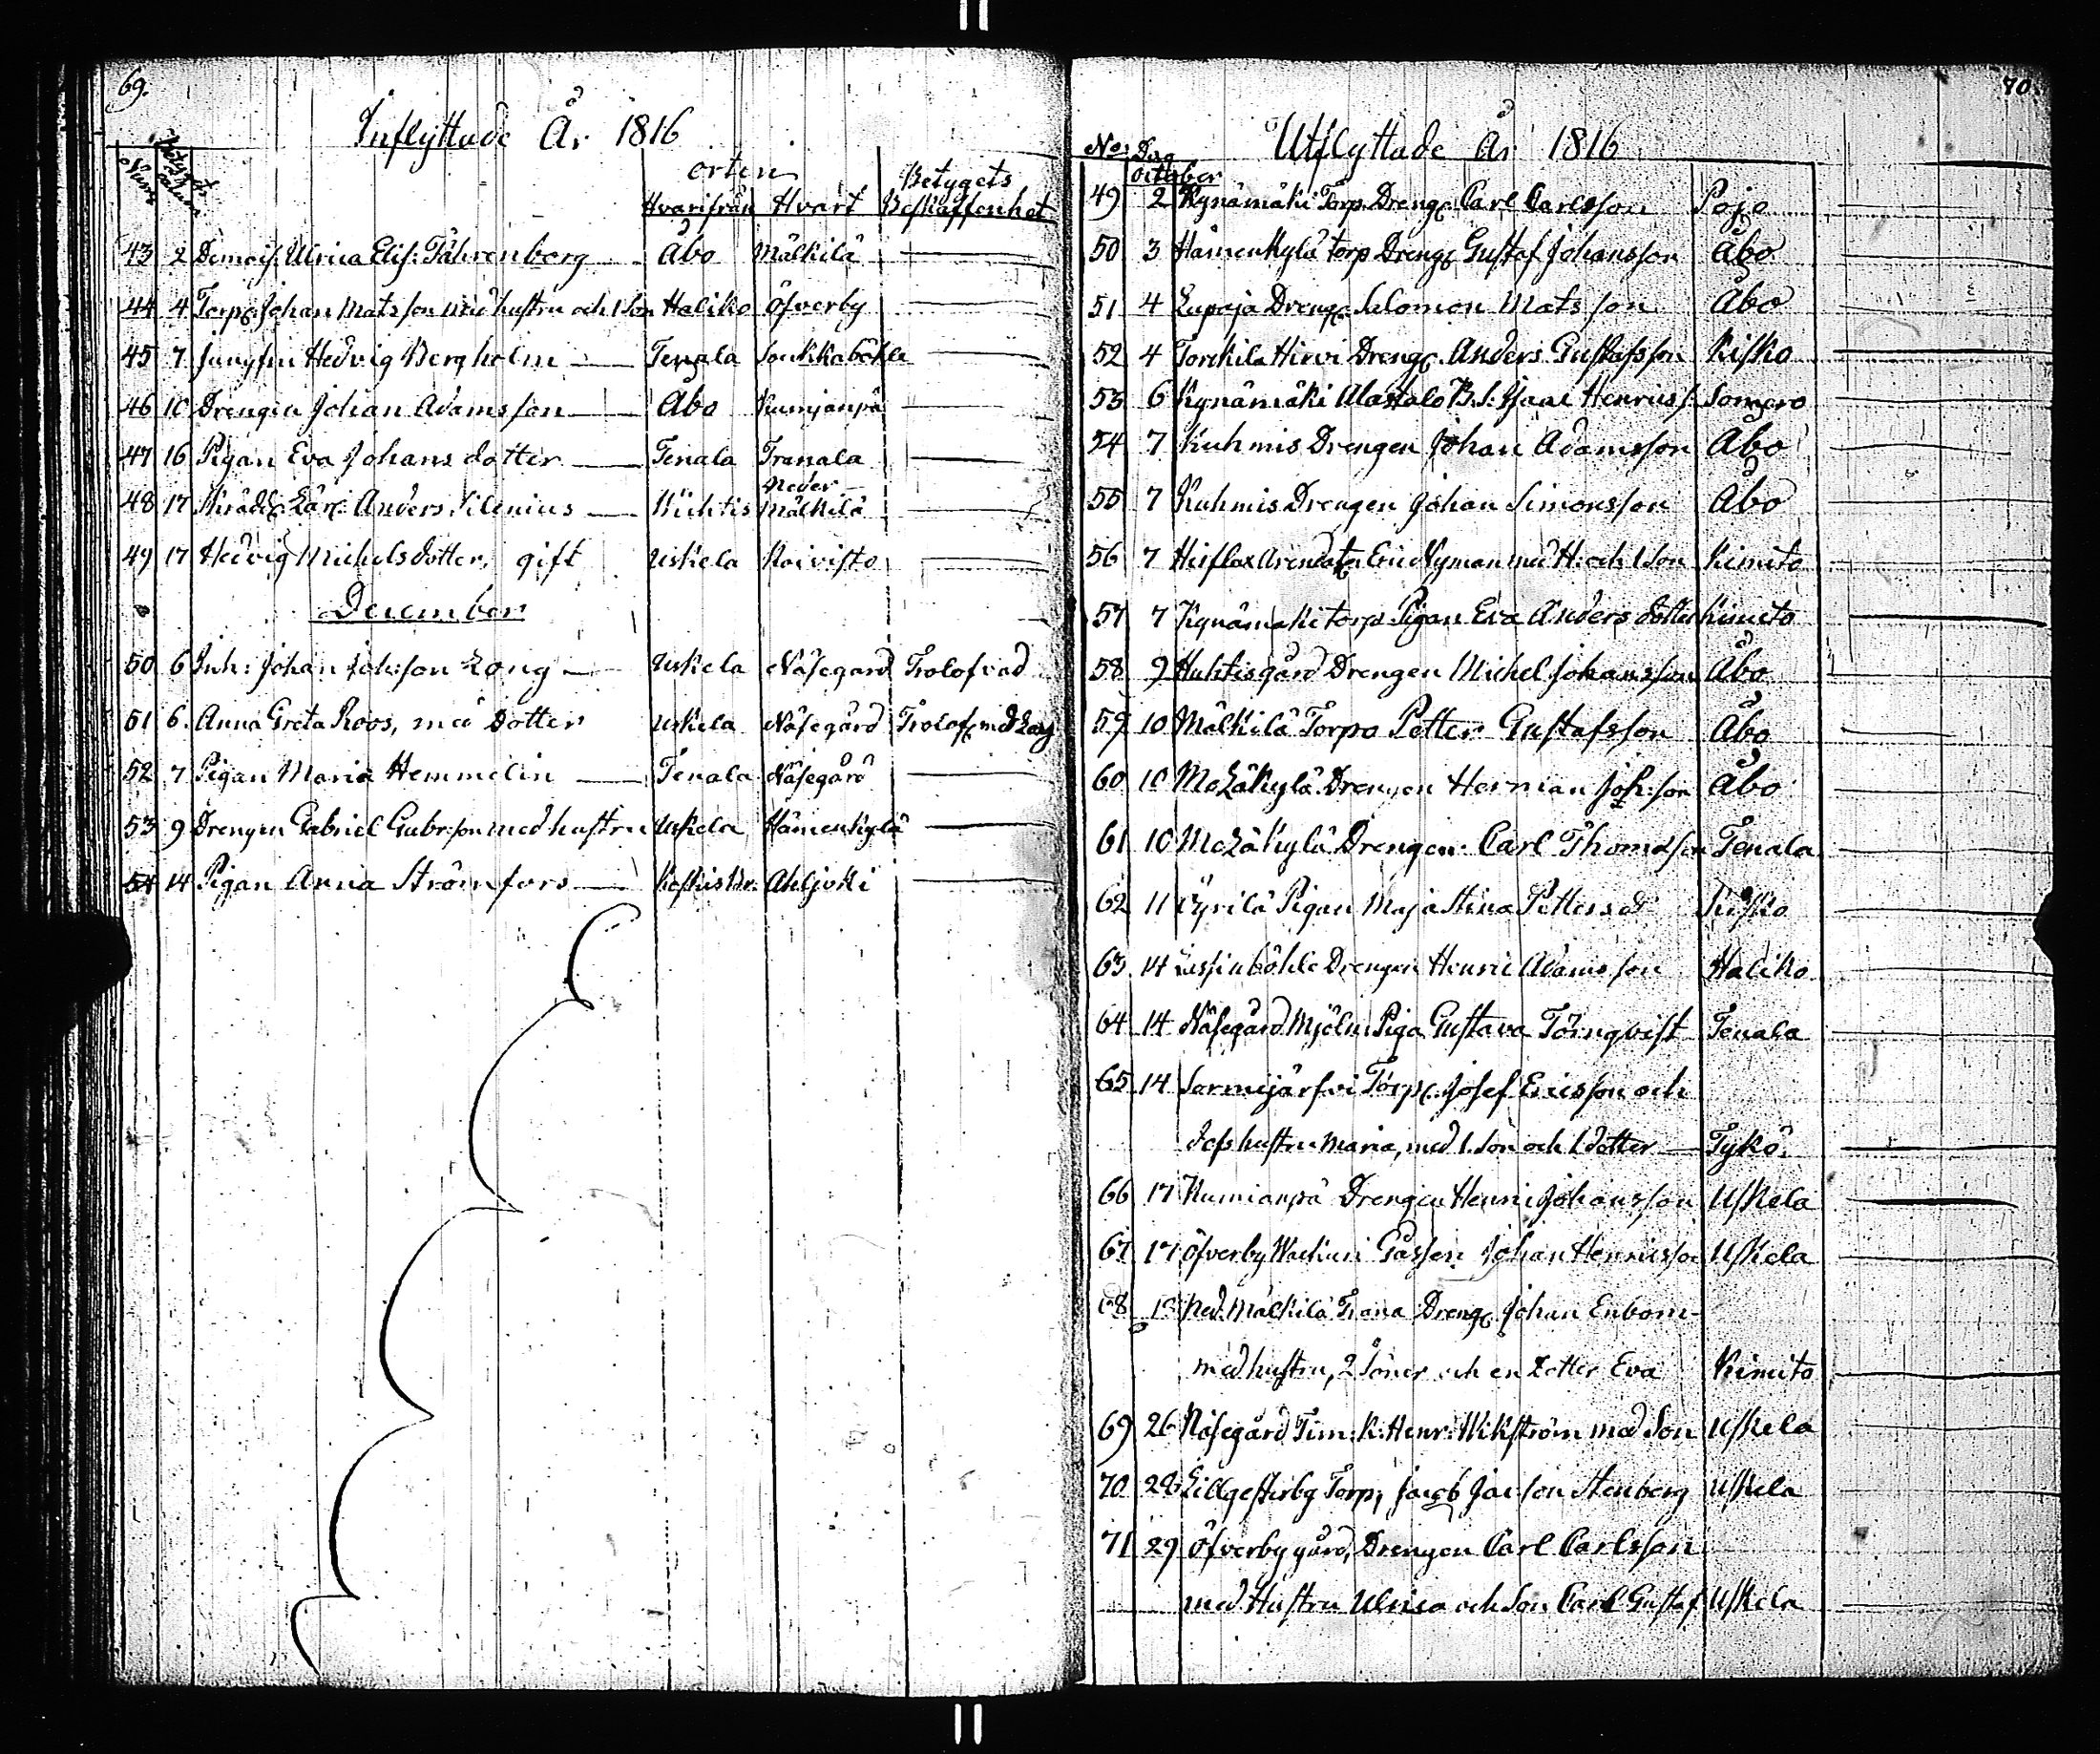 69.
Inflyttade År 1816
orten
Hvarifrån Hvart Betygets Beskaffenhet
43 2 Demois. Ulrica Elis. Fåhrenberg Åbo Mälkilä
44 4 Torp. Johan Matsson med hustru och 1 Son Haliko Öfverby
45 7 Jungfru Hedvig Bergholm Tenala
46 10 Drengen Johan Adamsson Åbo Kumianpä
47 16 Pigan Eva Johans dotter Tenala Tranala
48 17 Anders Silenius Wichtis Neder Mälkilä
49 17 Hedvig Michelsdotter, gift Uskela Koivisto
December
50 6 Inh: Johan Joh:sson Long Uskela Näsegård Trolofvad
51 6. Anna Greta Roos, med Dotter Uskela Näsegård Trolof. med Long
52 7 Pigan Maria Hemmelin Tenala Näsegård
53 9 Drengen Gabriel Gabr:son med hustru Uskela Hämenkylä
54 14 Pigan Anna Strömfors Ahljoki
70.
Utflyttade År 1816
No: Dag
October
49 2 Kynämäki Torp. Dreng. Carl Carlsson Pojo
50 3 Hämenkylä torp Dreng. Gustaf Johansson Åbo
51 4 Lupaja Dreng. Salomon Matsson Åbo
52 4 Torkila Hirvi Dreng. Anders Gustafsson Kisko
53 6 Kynämäki Alastalo B.S. Isaac Henrics: Somero
54 7 Kuhmis Drengen Johan Adamsson Åbo
55 7 Kuhmis Drengen Johan Simonsson Åbo
56 7 Arendat. Eric Nyman med H: och 1 Son Kimito
57 7 Kynämäki torp. Pigan Eva Anders dotter Kimito
58 9 Huhtisgård Drengen Michel Johansson Åbo
59 10 Mälkilä Torpo Petter Gustafsson Åbo
60 10 Drengen Herman Joh:son Åbo
61 10 Drengen Carl Thomasson Tenala
62 11 Pyrilä Pigan Maja Stina Petters d: Kisko
63 14 Lassinböhle Drengen Henric Adamsson Haliko
64 14 Näsegård Mjöln: Piga Gustava Törnqvist Tenala
65 14 Sarmijärfvi Torp. Josef Ericsson och
dess hustru Maria, med 1. Son och 1 dotter Tykö.
66 17 Kumianpä Drengen Henric Johansson Uskela
67 17 Öfverby Gossen Johan Henricsson Uskela
68 Ned. Mälkilä Trana Dreng. Johan Enbom
med hustru, 2 Söner och en Dotter Eva Kimito
69 26 Näsegård Tim: K: Henr: Wikström med Son Uskela
70 28 Lillgesterby Torp, Jacob Jac:son Stenberg Uskela
71 29 Öfverby gård, Drengen Carl Carlsson
med Hustru Ulrica och Son Carl Gustaf Uskela